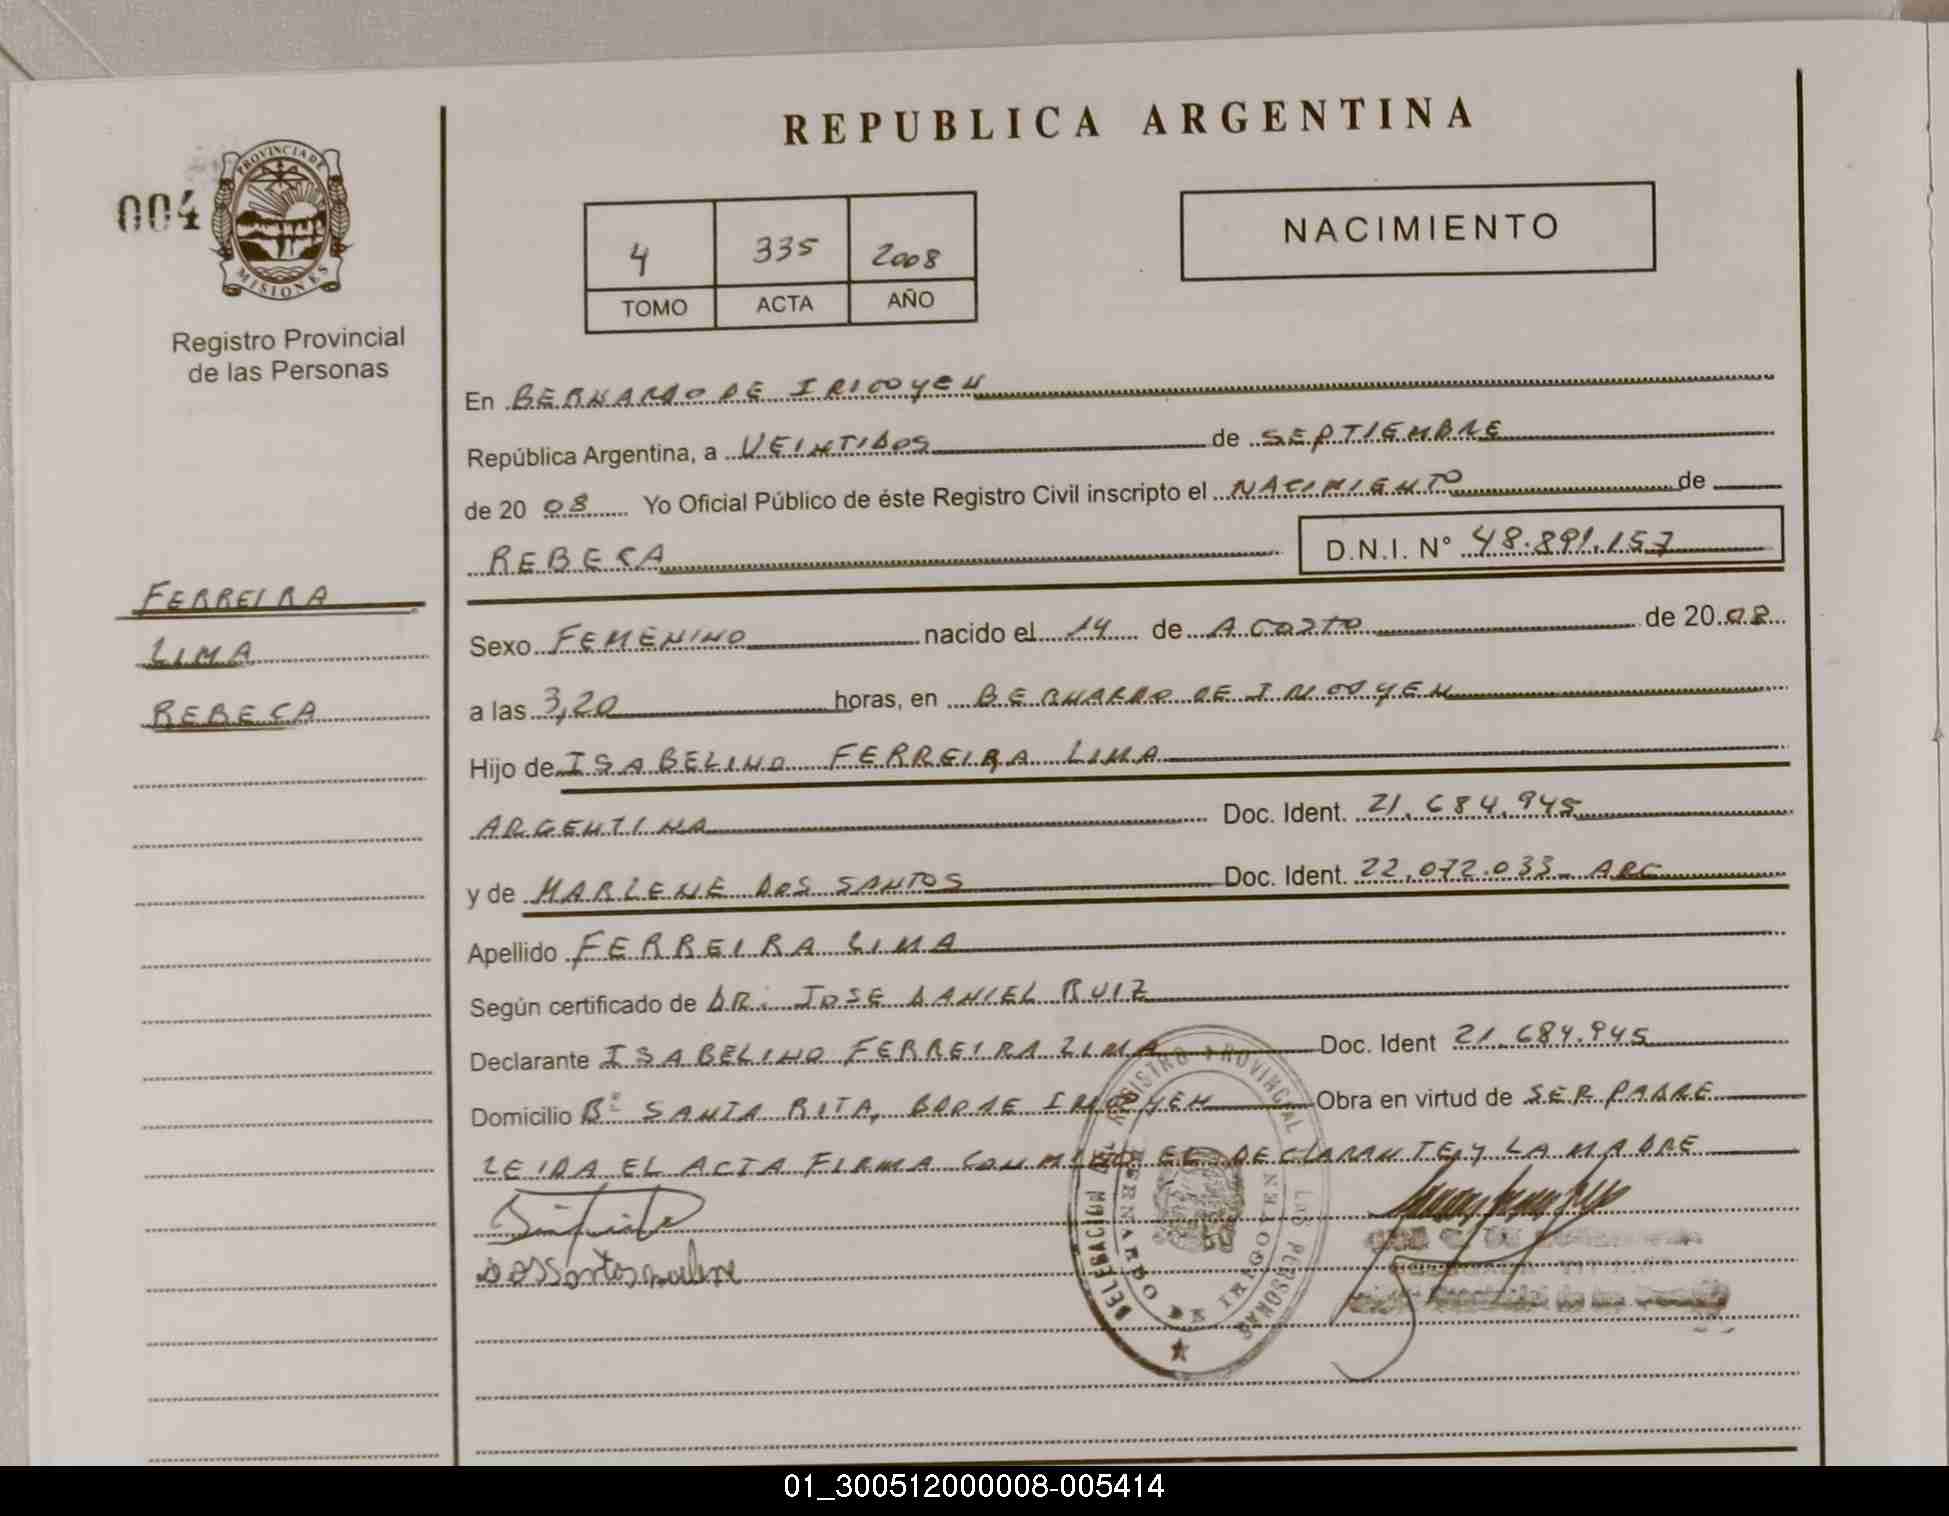 REPUBLICA ARGENTINA
004
PROVINCIA DE
MISIONES
Registro Provincial
de las Personas
4 335 2008
TOMO ACTA AÑO
NACIMIENTO
En BERNARDO DE IRIGOYEN
República Argentina, a VEINTIDOS de SEPTIEMBRE
de 20 08 Yo Oficial Público de éste Registro Civil inscripto el NACIMIENTO de
REBECA D.N.I. N° 48.891.157
FERREIRA
LIMA
REBECA
Sexo FEMENINO nacido el 14 de AGOSTO de 20 08
a las 3,20 horas, en BERNARDO DE IRIGOYEN
Hijo de ISABELINO FERREIRA LIMA
ARGENTINA Doc. Ident. 21.684.945
y de MARLENE DOS SANTOS Doc. Ident. 22.072.033 - ARG
Apellido FERREIRA LIMA
Según certificado de DR. JOSE DANIEL RUIZ
Declarante ISABELINO FERREIRA LIMA Doc. Ident 21.684.945
Domicilio B° SANTA RITA, BDODE IRIGOYEN Obra en virtud de SER PADRE
LEIDA EL ACTA FIRMA CONMIGO EL DECLARANTE Y LA MADRE
DELEGACION DEL REGISTRO PROVINCIAL DE LAS PERSONAS
BERNARDO DE IRIGOYEN
Dos Santos Marlene
01_300512000008-005414